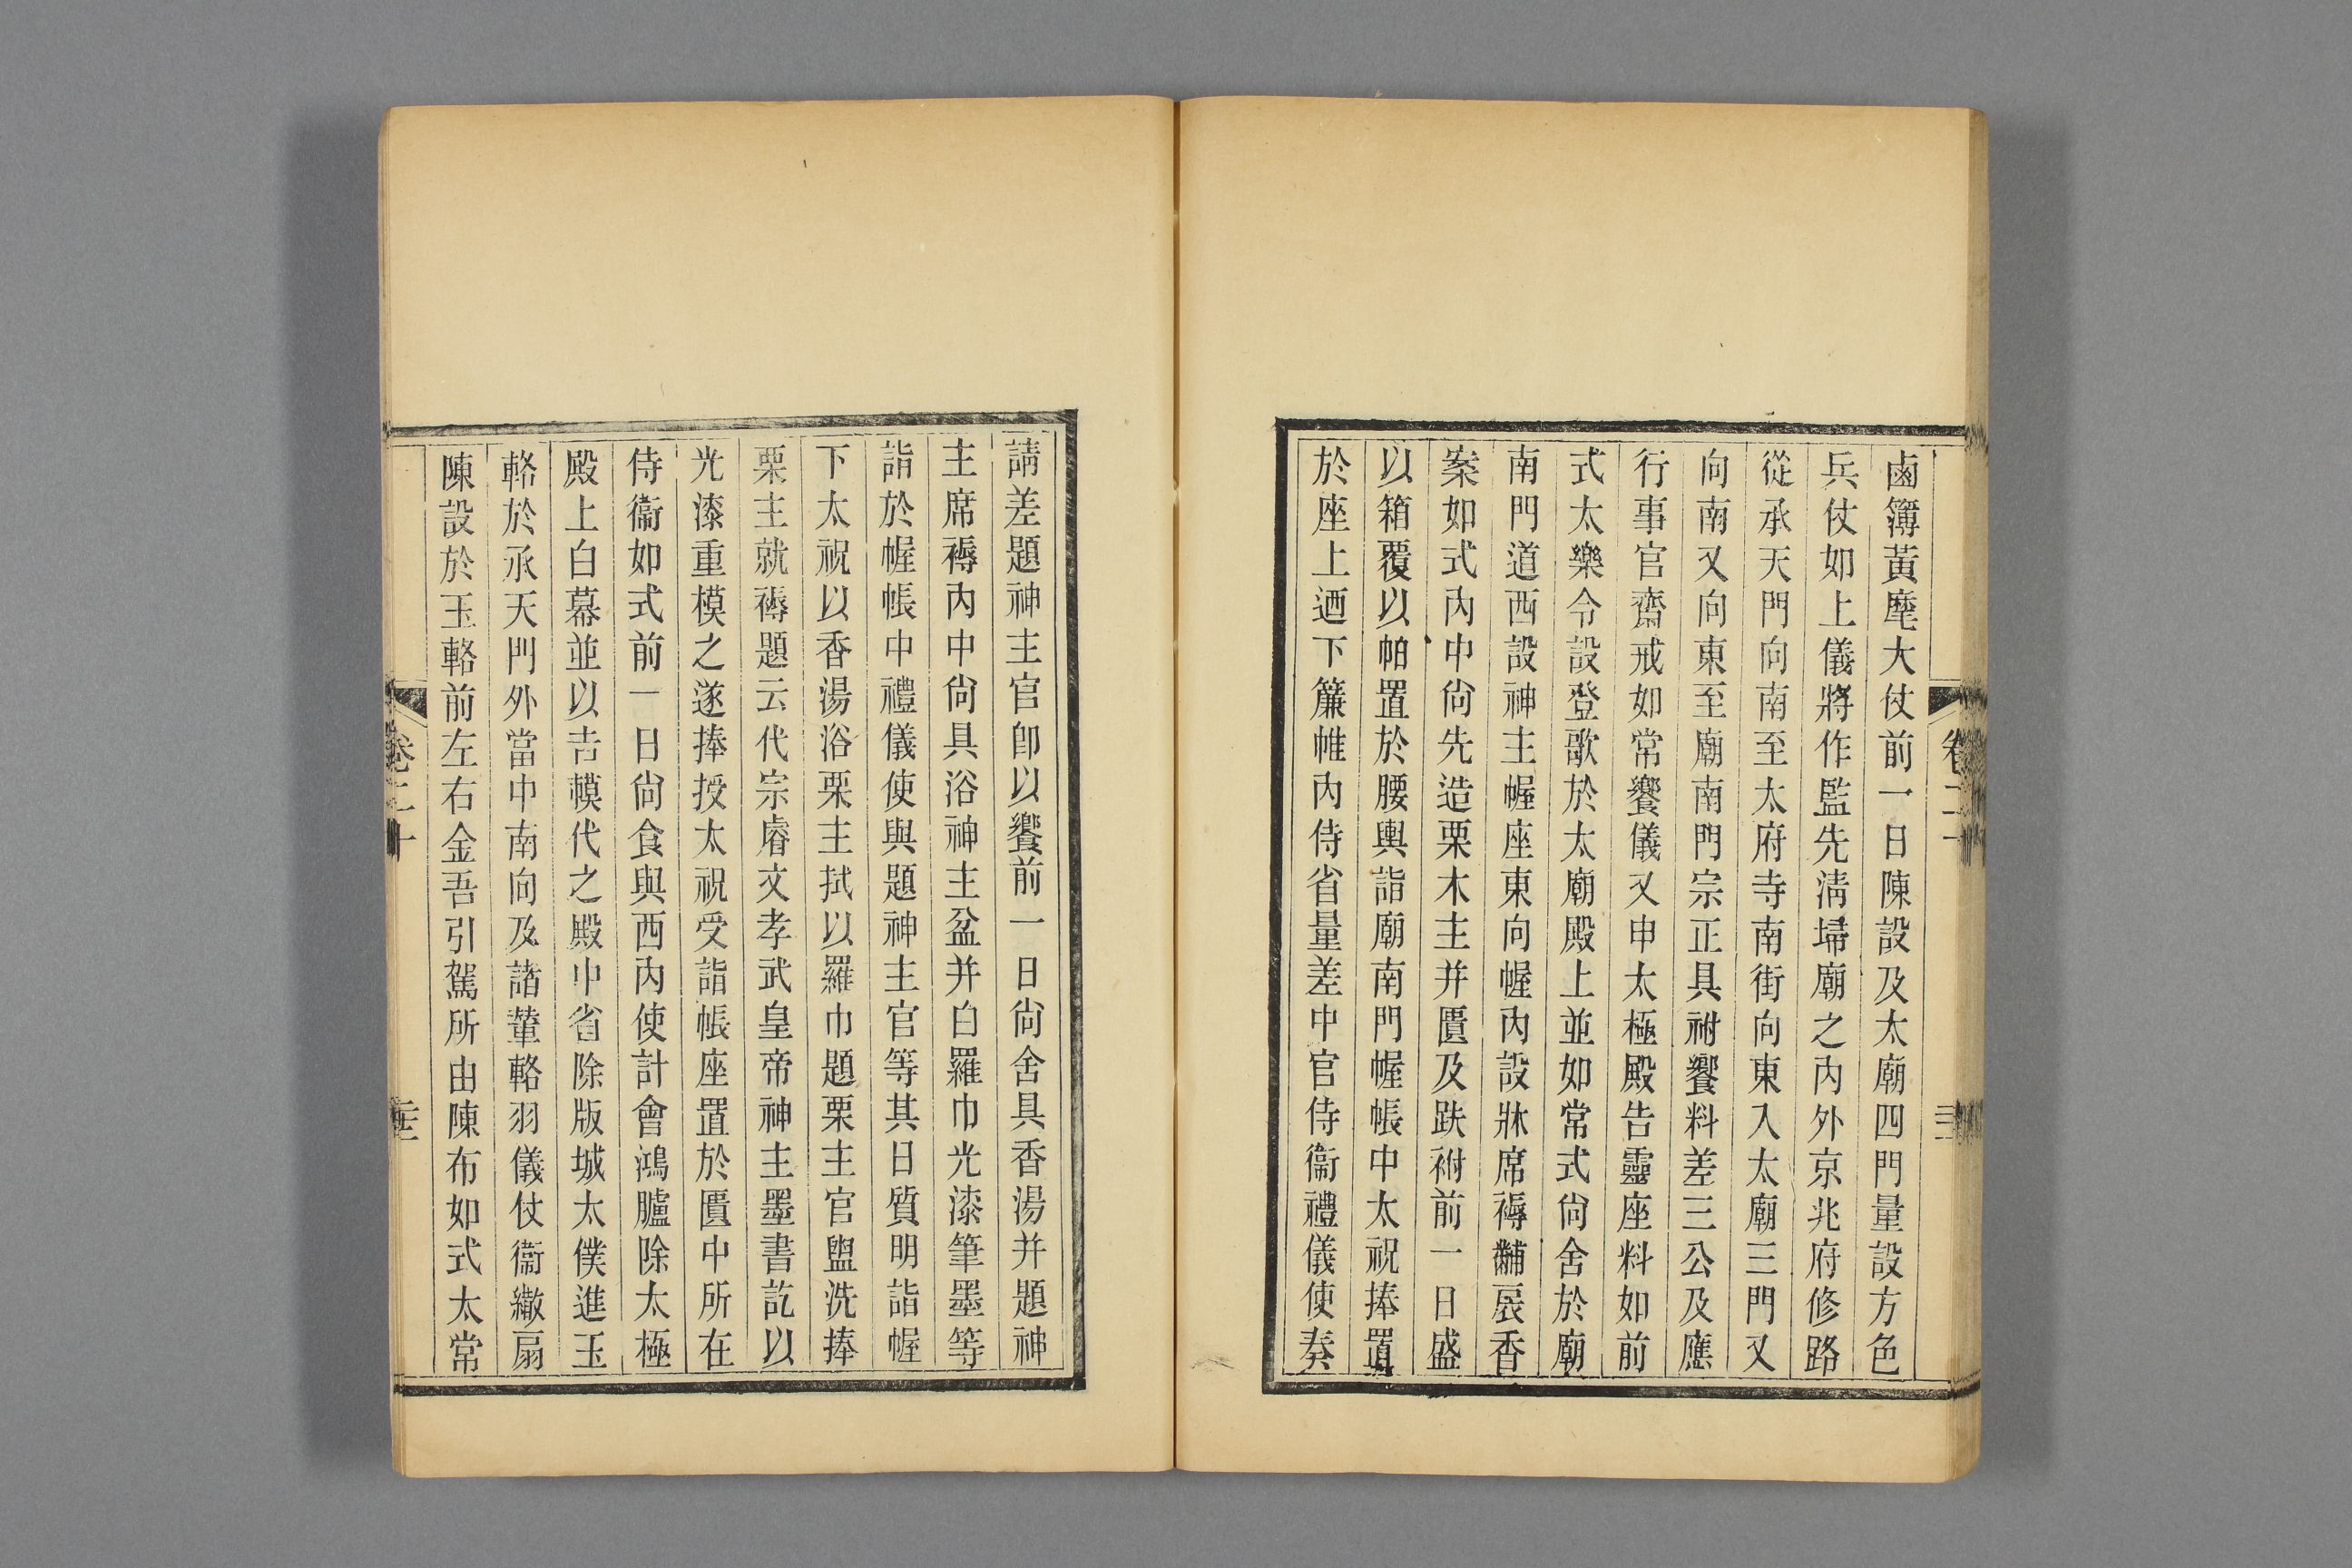 鹵簿黃麾大仗前一日陳設及太廟四門量設方色
兵仗如上儀將作監先淸埽廟之內外京兆府修路
從承天門向南至太府寺南街向東入太廟三門又
向南又向東至廟南門宗正具祔饗料差三公及應
行事官齋戒如常饗儀又申太極殿告靈座料如前
式太樂令設登歌於太廟殿上並如常式尙舍於廟
南門道西設神主幄座東向幄內設牀席褥黼扆香
案如式內中尙先造栗木主并匱及趺祔前一日盛
以箱覆以帕置於腰輿詣廟南門幄帳中太祝捧置
於座上迺下簾帷內侍省量差中官侍衞禮儀使奏
請差題神主官卽以饗前一日尙舍具香湯并題神
主席褥內中尙具浴神主盆并白羅巾光漆筆墨等
詣於幄帳中禮儀使與題神主官等其日質明詣幄
下太祝以香湯浴栗主拭以羅巾題栗主官盥洗捧
栗主就褥題云代宗睿文孝武皇帝神主墨書訖以
光漆重模之遂捧授太祝受詣帳座置於匱中所在
侍衞如式前一日尙食與西內使計會鴻臚除太極
殿上白幕並以吉幙代之殿中省除版城太僕進玉
輅於承天門外當中南向及諸輦輅羽儀仗衞繖扇
陳設於玉輅前左右金吾引駕所由陳布如式太常
卷二十